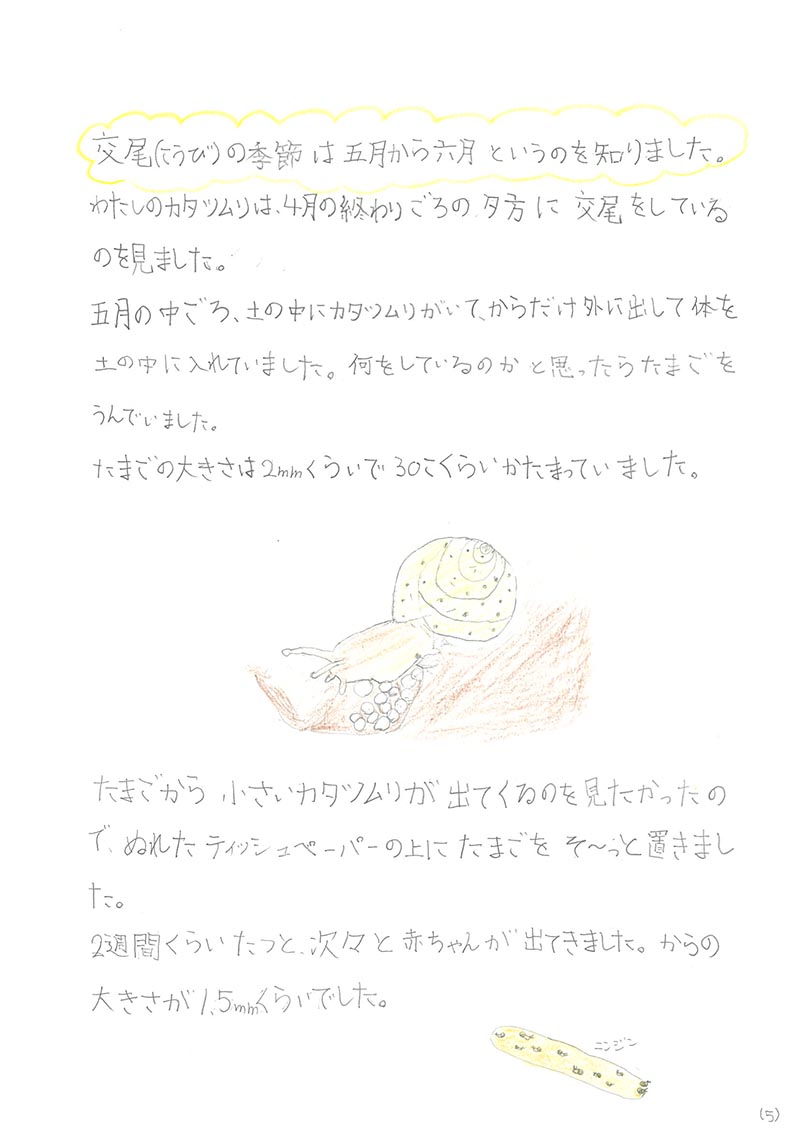 交尾(こうび)の季節は五月から六月というのを知りました。
わたしのカタツムリは、4月の終わりごろの夕方に交尾をしている
のを見ました。
五月の中ごろ、土の中にカタツムリがいて、からだけ外に出して体を
土の中に入れていました。何をしているのかと思ったらたまごを
うんでいました。
たまごの大きさは2mmくらいで30こくらいかたまっていました。
たまごから小さいカタツムリが出てくるのを見たかったの
で、ぬれたティッシュペーパーの上にたまごをそ〜っと置きまし
た。
2週間くらいたつと、次々と赤ちゃんが出てきました。からの
大きさが1.5mmくらいでした。
ニンジン
(5)